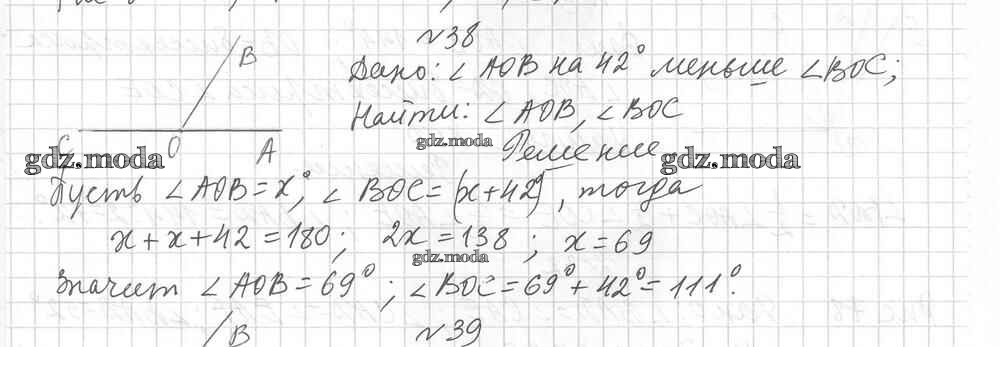 №38
B
Дано: ∠AOB на 42° меньше ∠BOC;
Найти: ∠AOB, ∠BOC
C O A
Решение
gdz.moda gdz.moda gdz.moda
Пусть ∠AOB=x°, ∠BOC=(x+42°), тогда
x+x+42=180; 2x=138; x=69
gdz.moda
Значит ∠AOB=69°; ∠BOC=69°+42°=111°.
B №39